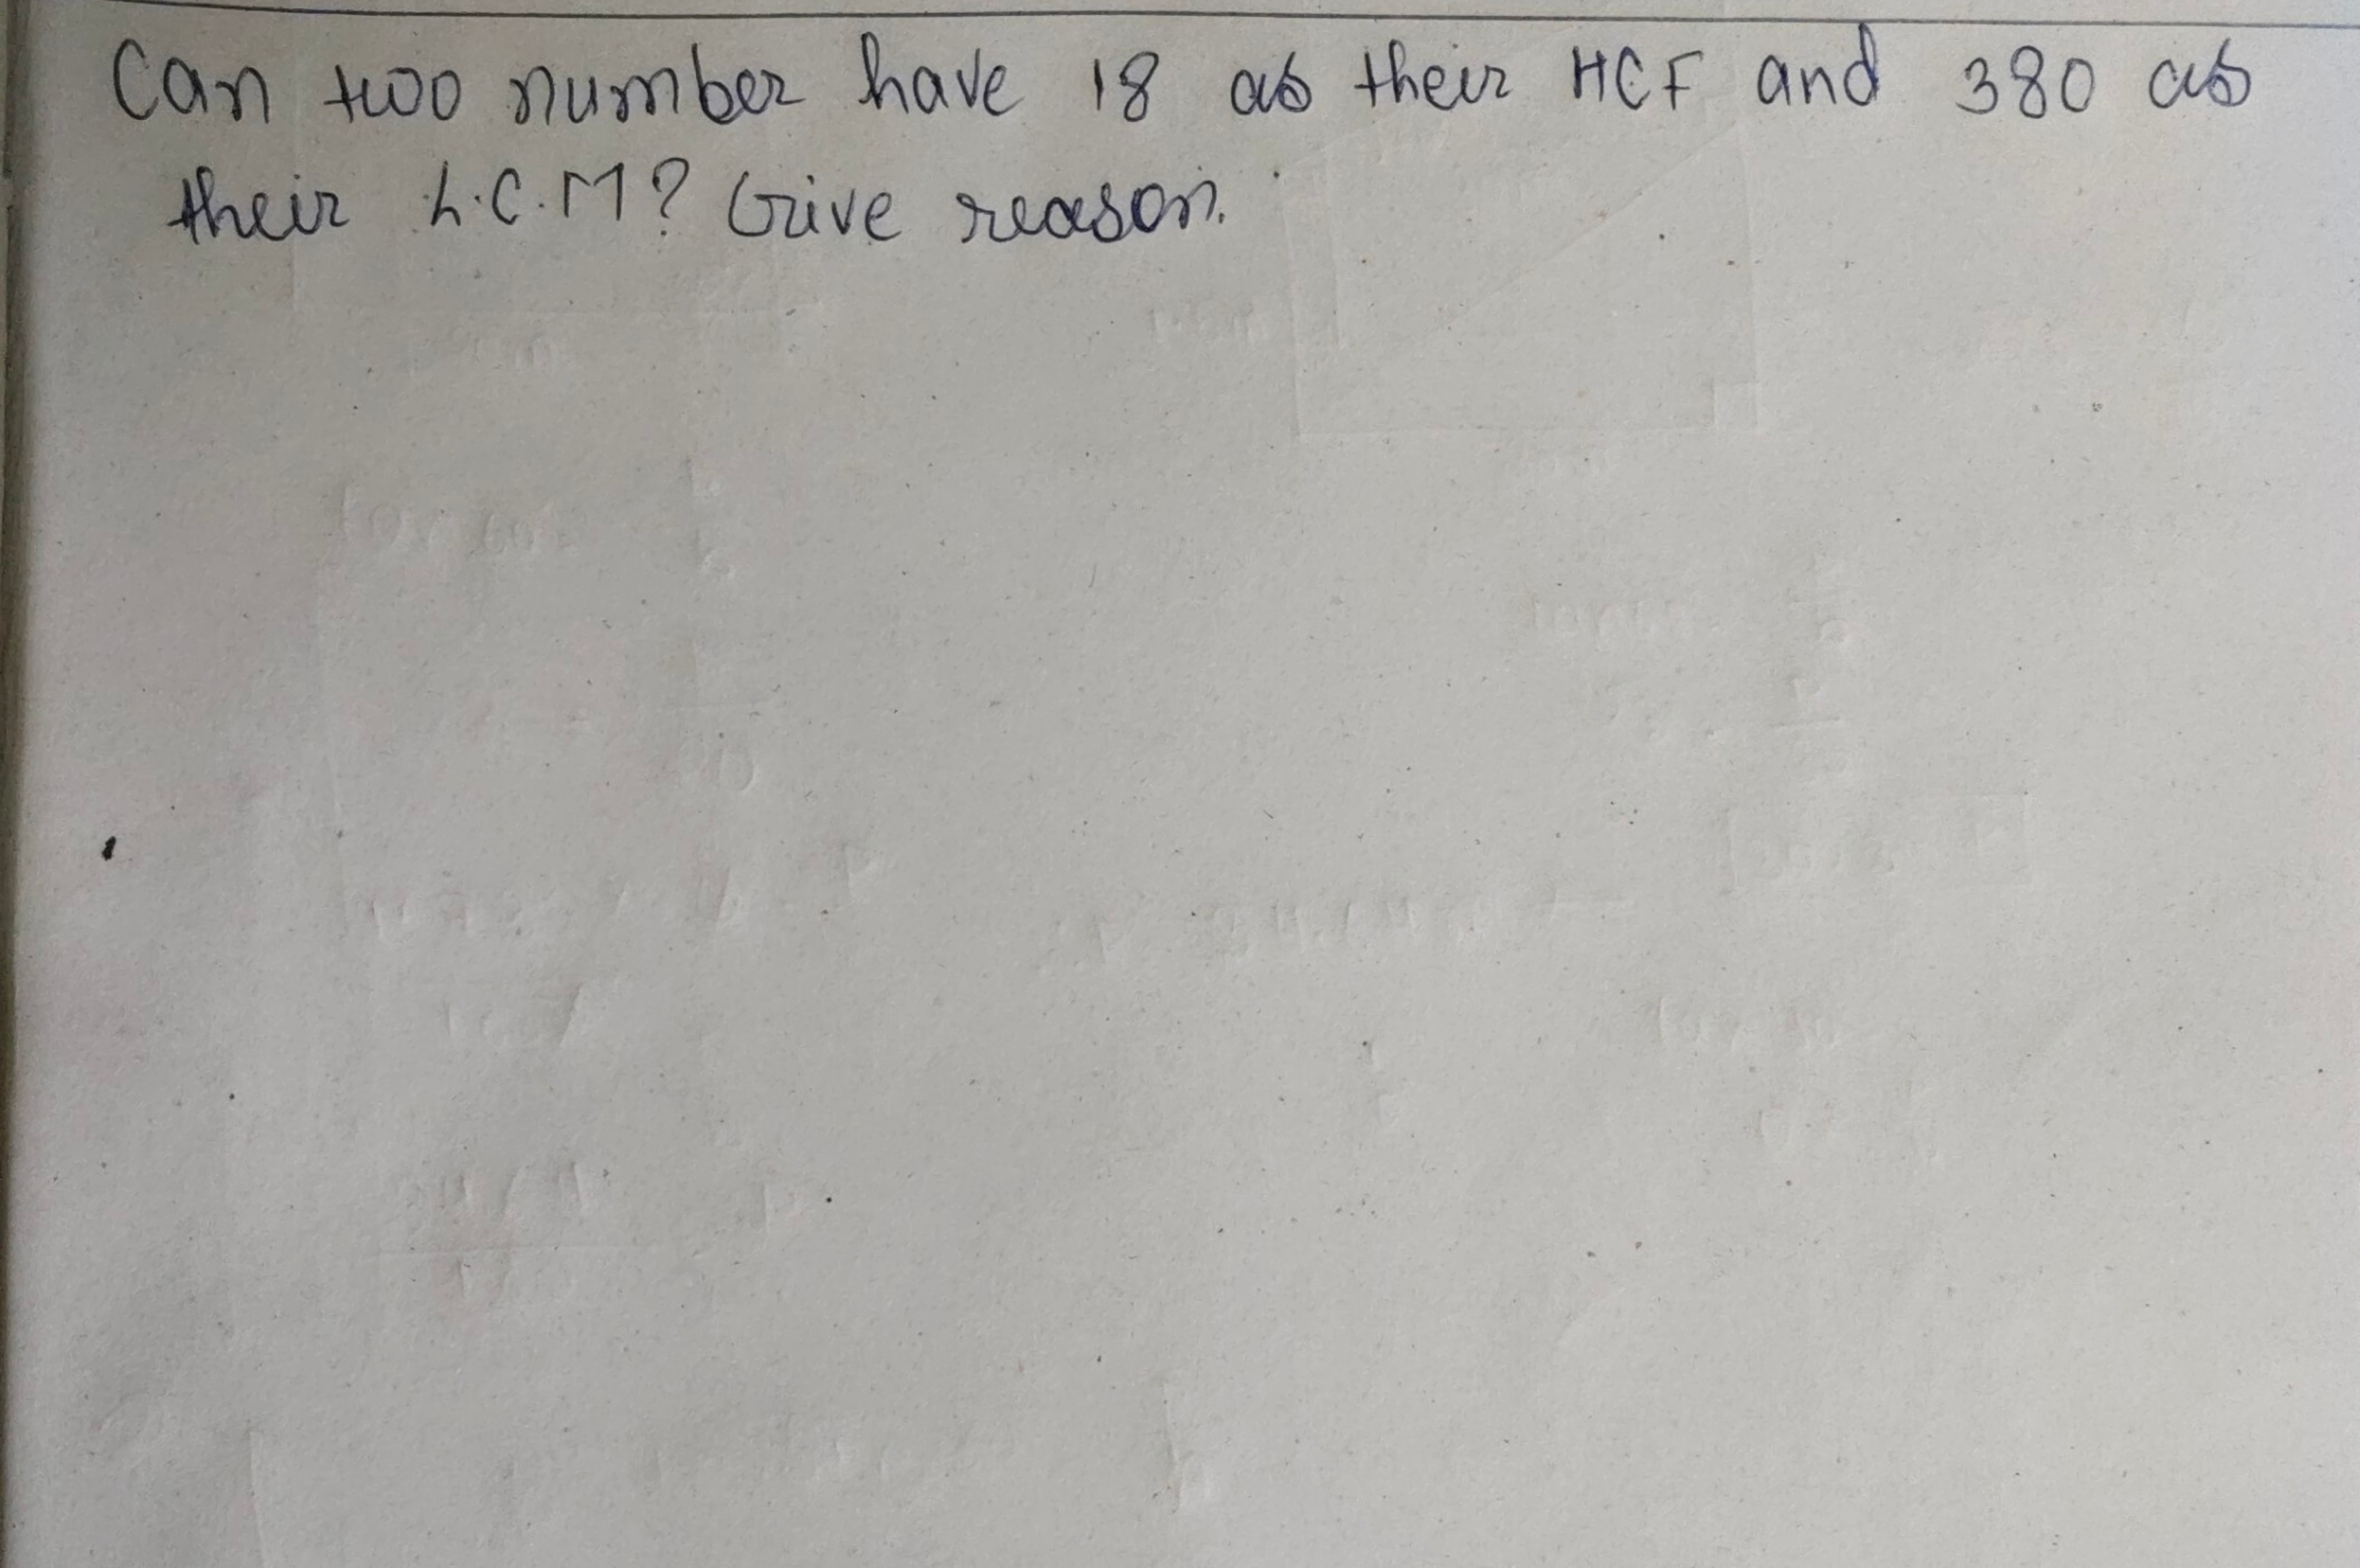 Can two number have 18 as their HCF and 380 as
their L.C.M? Give reason.